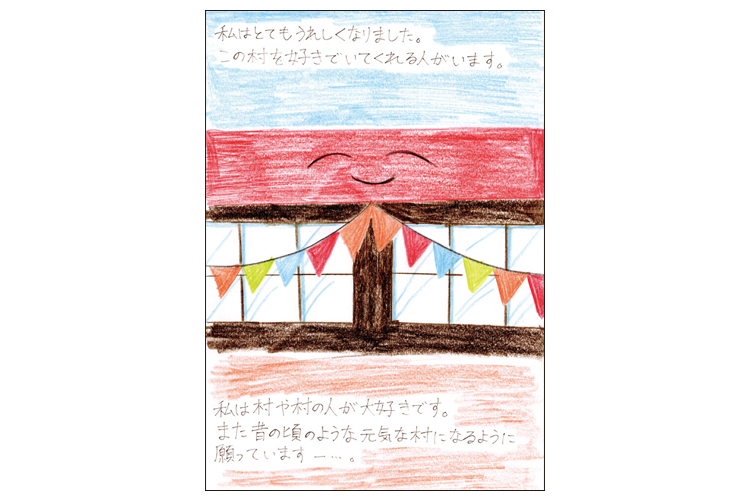 私はとてもうれしくなりました。
この村を好きでいてくれる人がいます。
私は村や村の人が大好きです。
また昔の頃のような元気な村になるように
願っています―…。